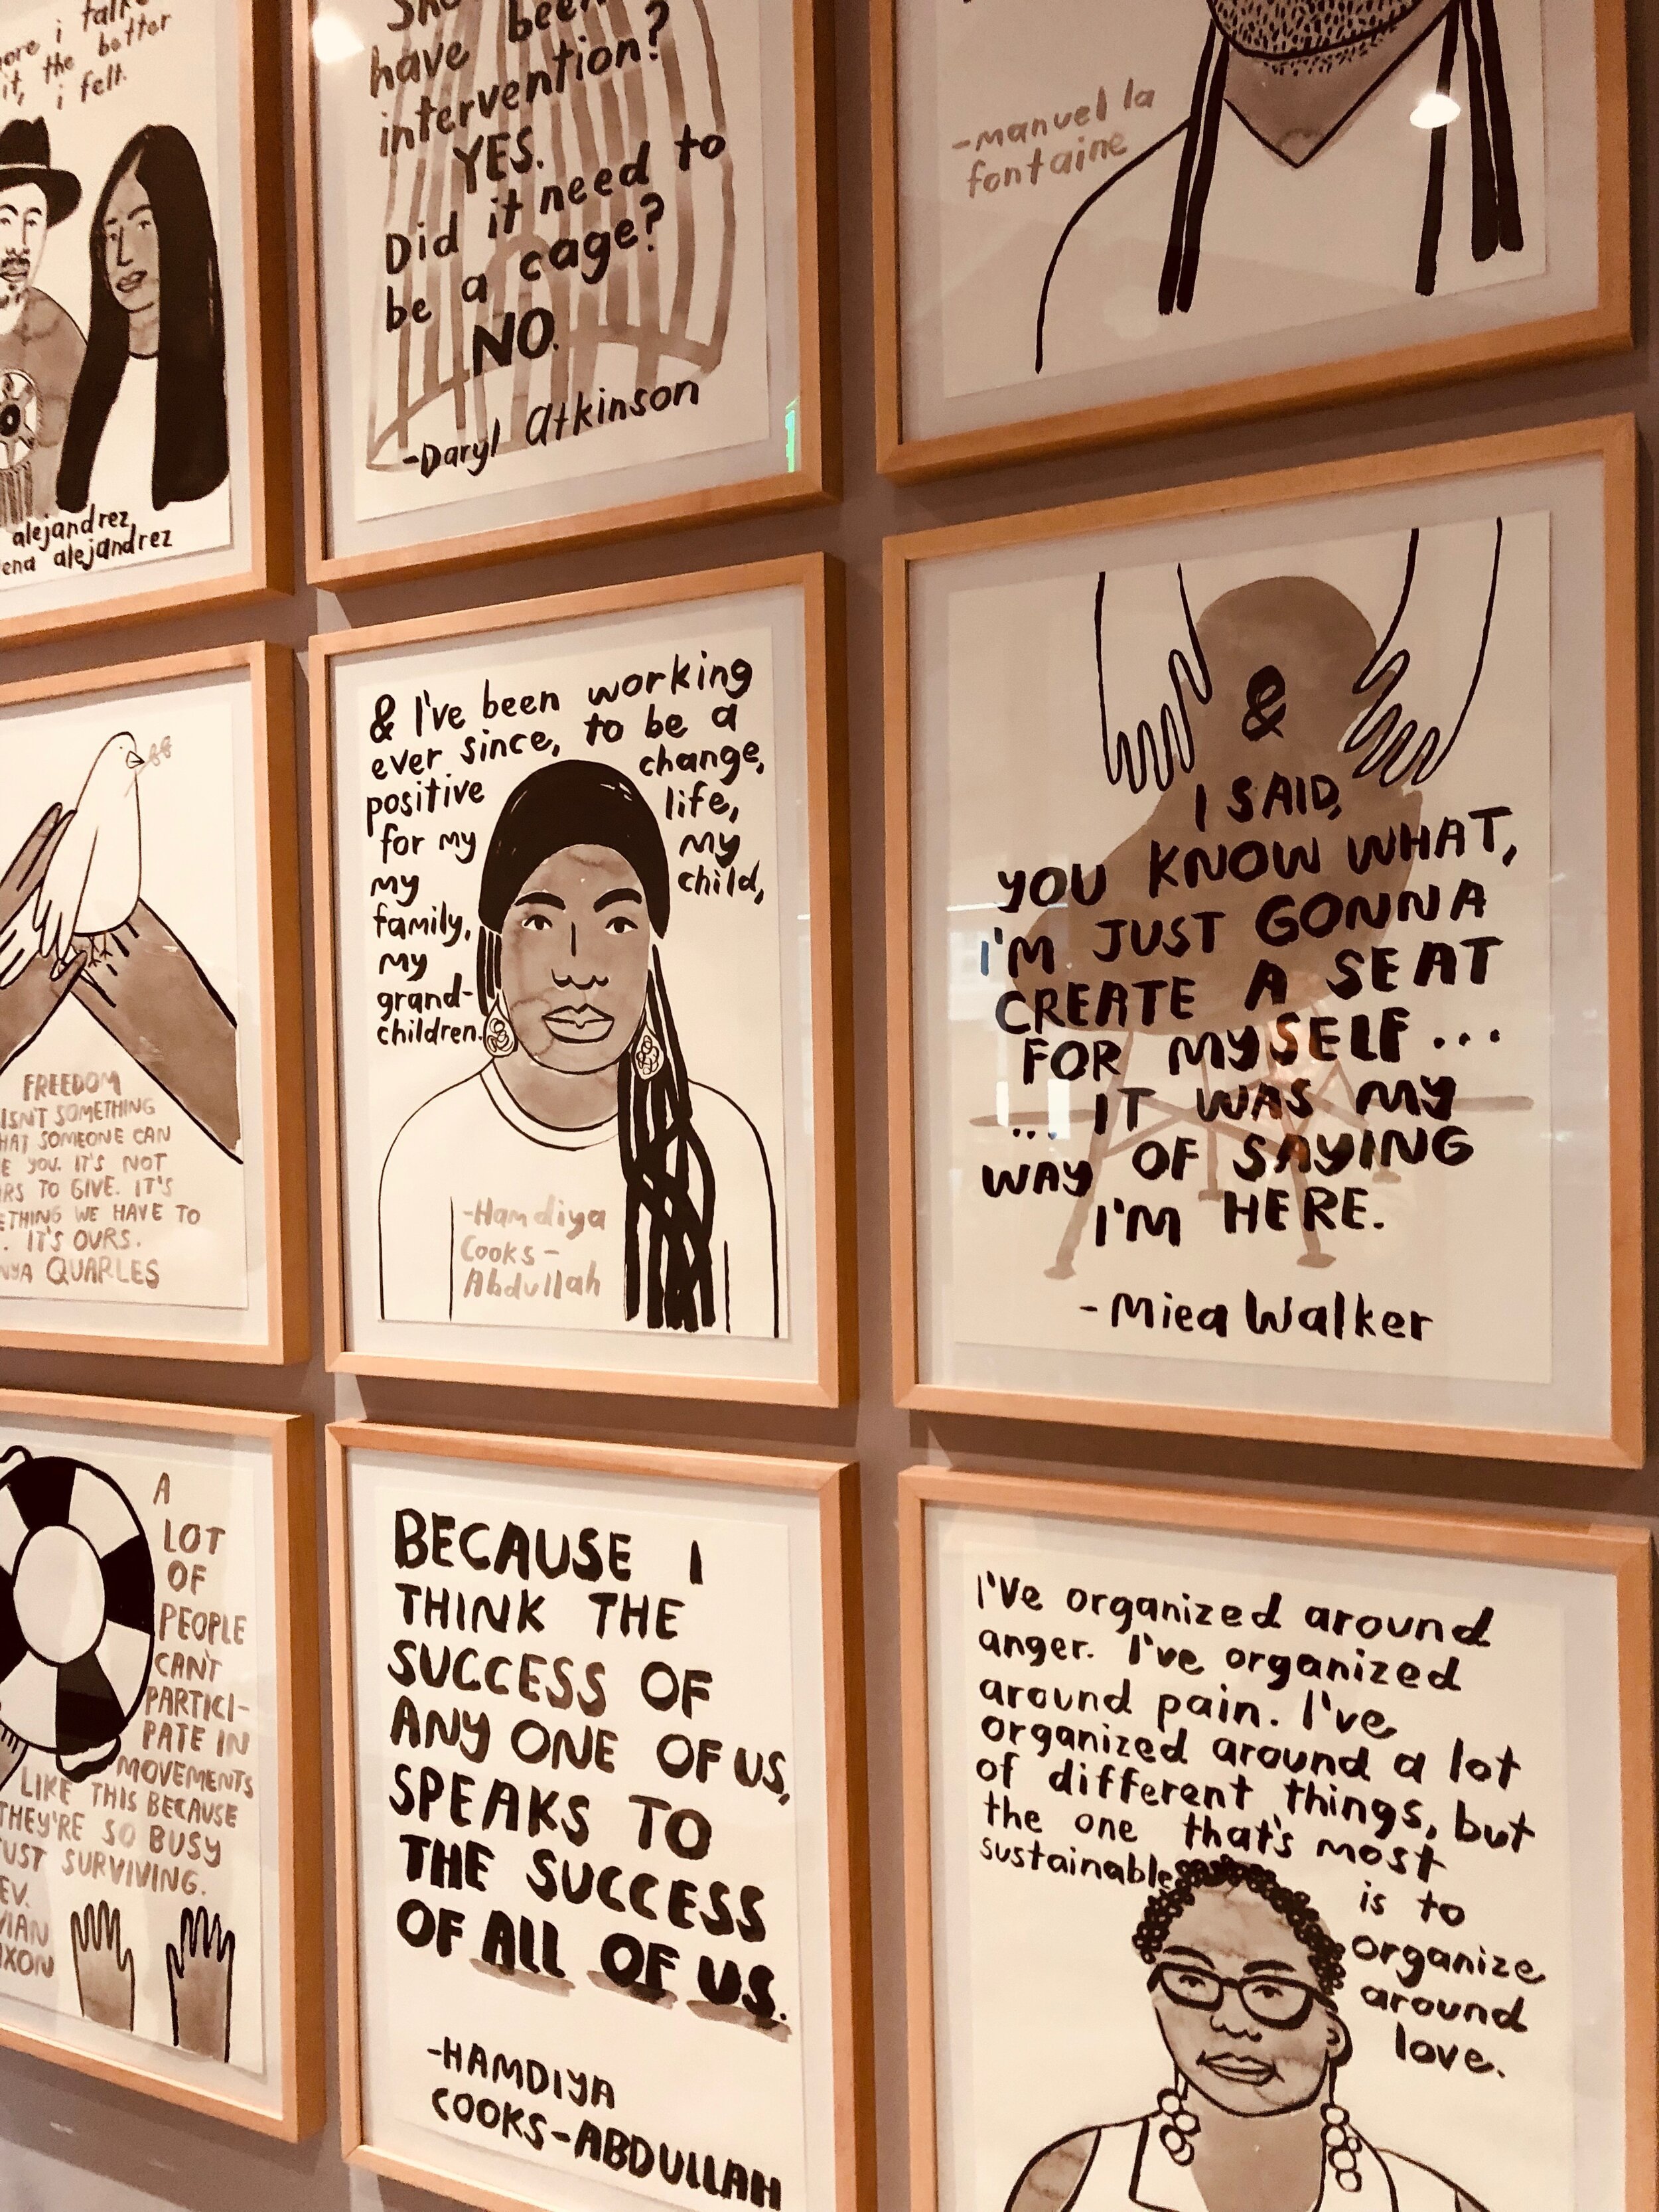 i talk
ore i
it, the better
i felt.
alejandrez,
ena alejandrez
have been
intervention?
YES.
Did it need to
be a cage?
NO.
-Daryl Atkinson
-manuel la
fontaine
FREEDOM
ISN'T SOMETHING
HAT SOMEONE CAN
E YOU. IT'S NOT
RS TO GIVE. IT'S
ETHING WE HAVE TO
. IT'S OURS.
NYA QUARLES
& I've been working
ever since, to be a
positive change,
for my life,
my my
family, child,
my
grand-
children.
-Hamdiya
Cooks-
Abdullah
&
I SAID,
YOU KNOW WHAT,
I'M JUST GONNA
CREATE A SEAT
FOR MYSELF...
... IT WAS MY
WAY OF SAYING
I'M HERE.
-Miea Walker
A
LOT
OF
PEOPLE
CAN'T
PARTICI-
PATE IN
MOVEMENTS
LIKE THIS BECAUSE
THEY'RE SO BUSY
UST SURVIVING.
EV.
VIAN
IXON
BECAUSE I
THINK THE
SUCCESS OF
ANY ONE OF US,
SPEAKS TO
THE SUCCESS
OF ALL OF US.
-HAMDIYA
COOKS-ABDULLAH
I've organized around
anger. I've organized
around pain. I've
organized around a lot
of different things, but
the one that's most
sustainable
is to
organize
around
love.